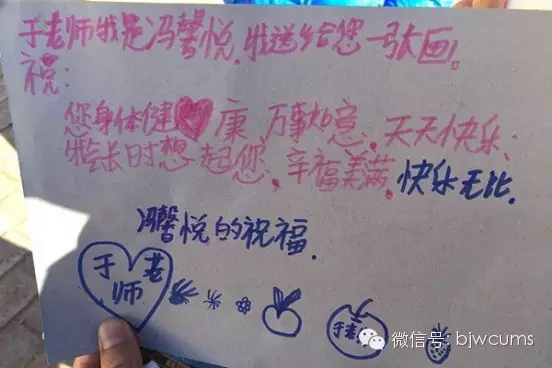 于老师我是冯馨悦,我送给您一张画。
祝:
您身体健康、万事如意、天天快乐、
我会长时想起您、辛福美满,快乐无比.
冯馨悦的祝福.
于老
师
于老
微信号: bjwcums